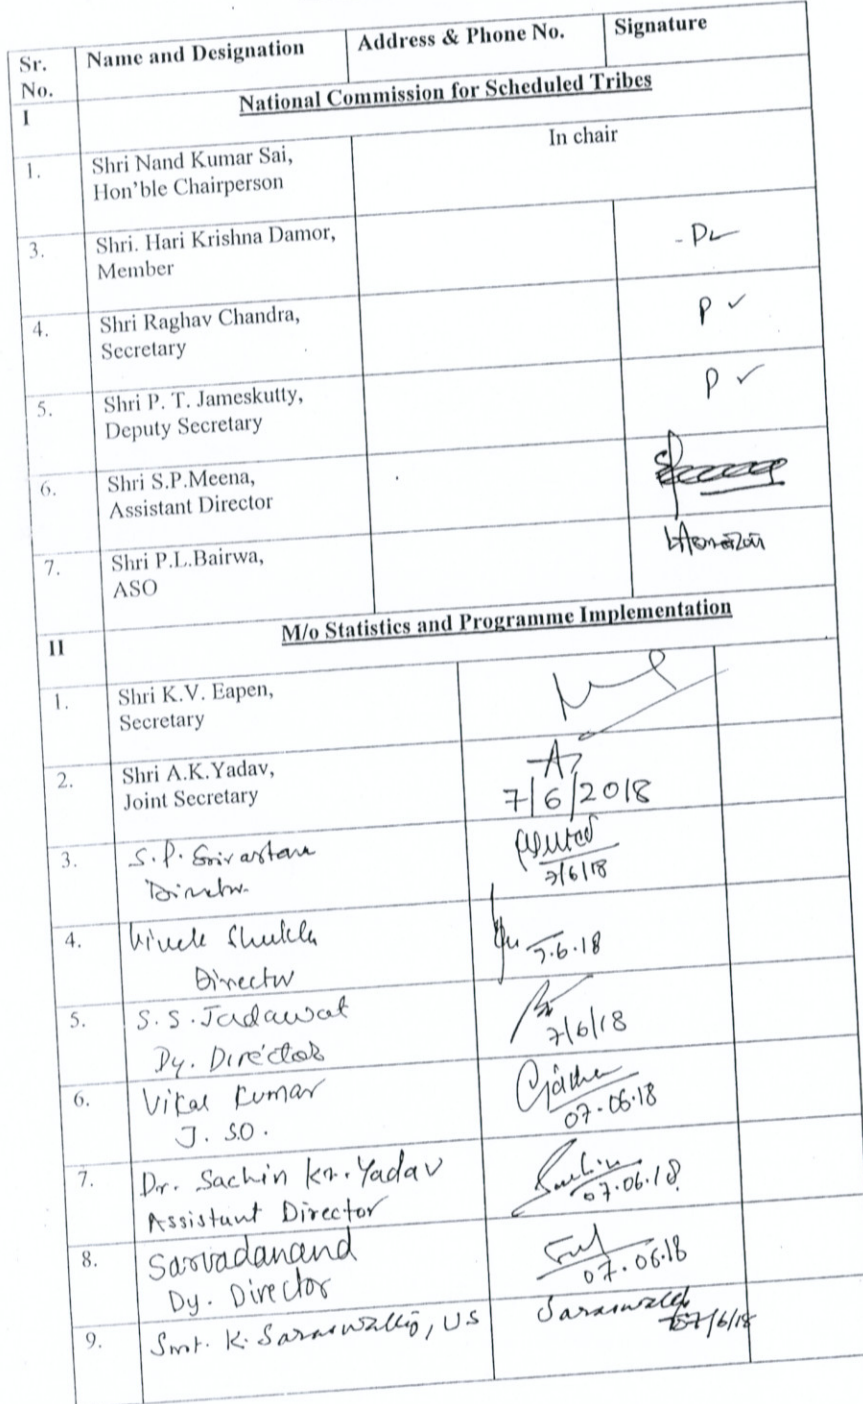 Sr. No. Name and Designation Address & Phone No. Signature
I National Commission for Scheduled Tribes
1. Shri Nand Kumar Sai, In chair
Hon'ble Chairperson
3. Shri. Hari Krishna Damor,
Member
4. Shri Raghav Chandra, P ✓
Secretary
5. Shri P. T. Jameskutty, P ✓
Deputy Secretary
6. Shri S.P.Meena,
Assistant Director
7. Shri P.L.Bairwa,
ASO
II M/o Statistics and Programme Implementation
1. Shri K.V. Eapen,
Secretary
2. Shri A.K.Yadav,
Joint Secretary 7/6/2018
3. S.P. Srivastava
Director 7/6/18
4. Vivek Shukla
Director 7.6.18
5. S.S. Jadawat
Dy. Director 7/6/18
6. Vikas Kumar
J. SO. 07-06-18
7. Dr. Sachin Kr. Yadav Sachin
Assistant Director 07.06.18
8. Sarvadanand
Dy. Director 07.06.18
9. Smt. K. Saraswathy, US 7/6/18